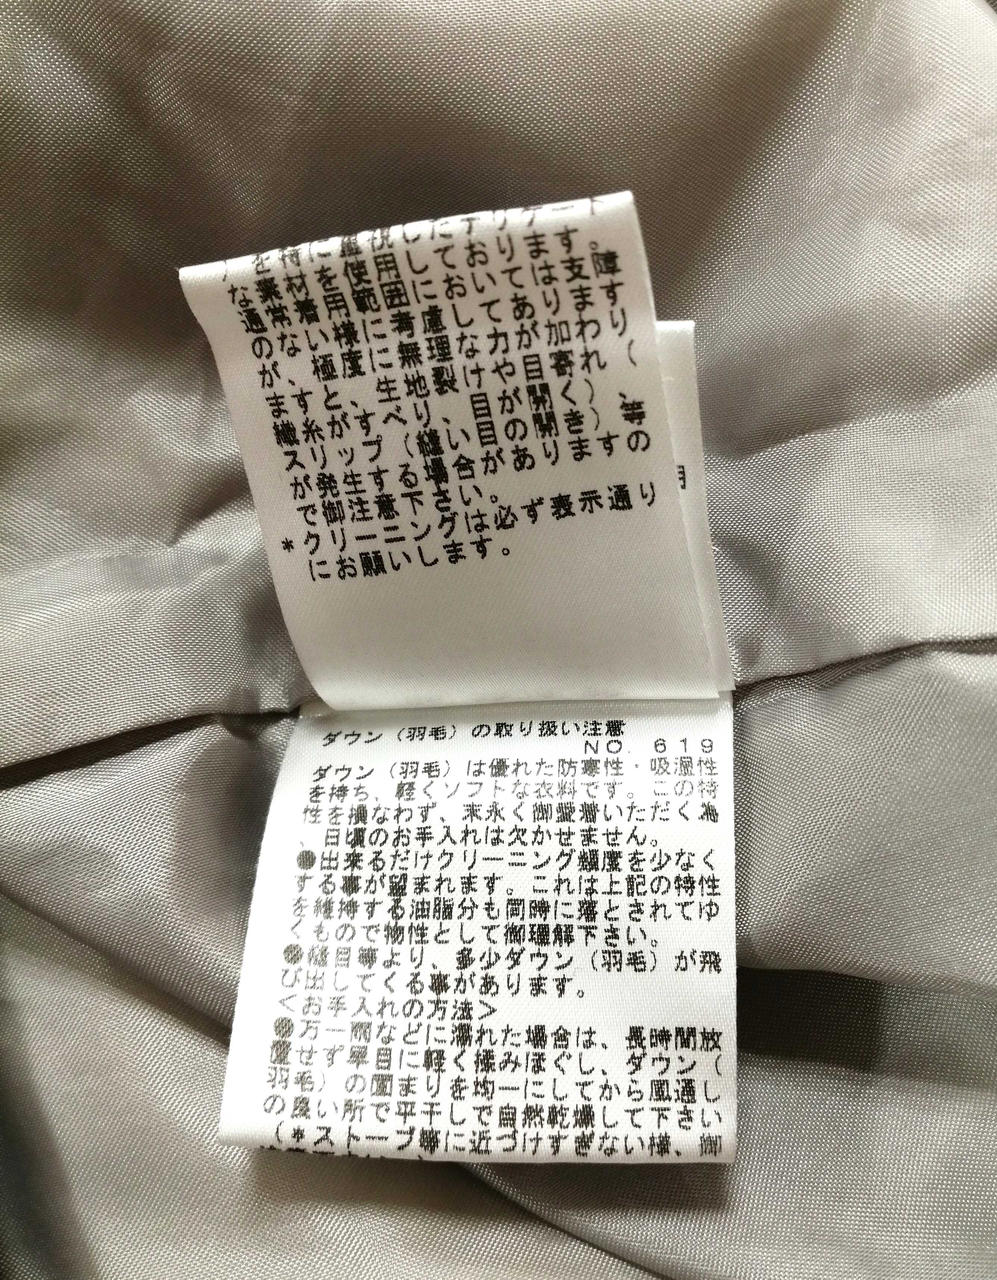 を特に重視したデリケート
な素材を使用しております。
通常着用範囲においては支障
のない様に考慮してあります
が、極度に無理な力が加わり
ますと、生地裂けや目寄れ（
織糸がすべり、目が開く）、
スリップ（縫い目の開き）等
が発生する場合がありますの
で御注意下さい。
＊クリーニングは必ず表示通り
にお願いします。
用
ダウン（羽毛）の取り扱い注意
NO. 619
ダウン（羽毛）は優れた防寒性・吸湿性
を持ち、軽くソフトな衣料です。この特
性を損なわず、末永く御愛着いただく為
、日頃のお手入れは欠かせません。
●出来るだけクリーニング頻度を少なく
する事が望まれます。これは上記の特性
を維持する油脂分も同時に落とされてゆ
くもので物性として御理解下さい。
●縫目等より、多少ダウン（羽毛）が飛
び出してくる事があります。
＜お手入れの方法＞
●万一雨などに濡れた場合は、長時間放
置せず早目に軽く揉みほぐし、ダウン（
羽毛）の固まりを均一にしてから風通し
の良い所で平干しで自然乾燥して下さい
（＊ストーブ等に近づけすぎない様、御